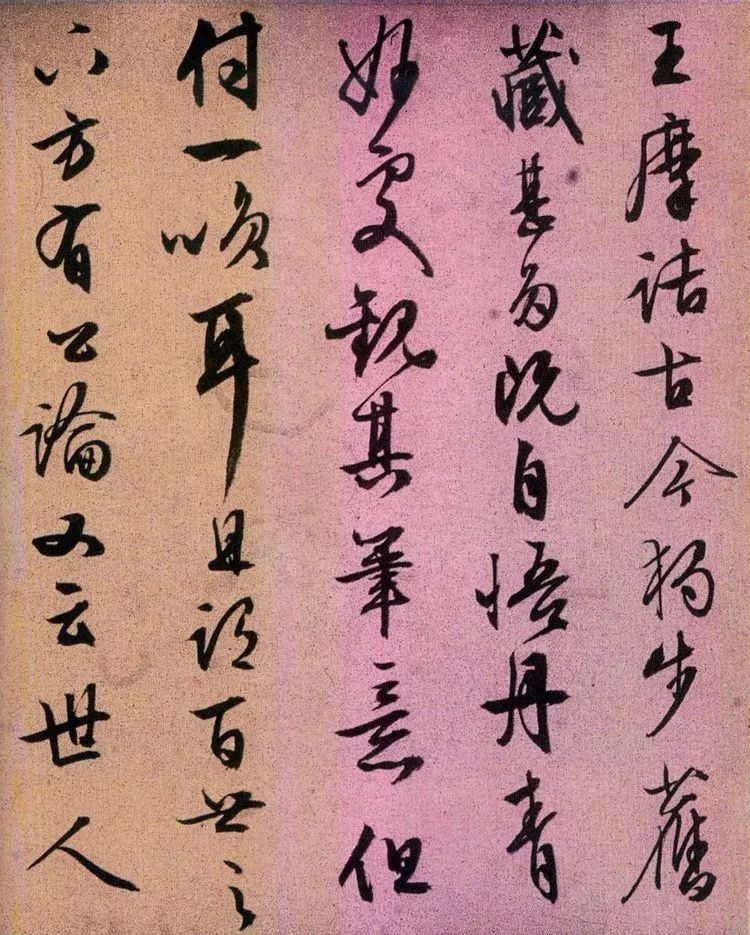 王摩詰古今獨步舊
藏甚多既自悟丹青
妙處觀其筆意但
付一咲耳且謂百世之
下方有公論又云世人